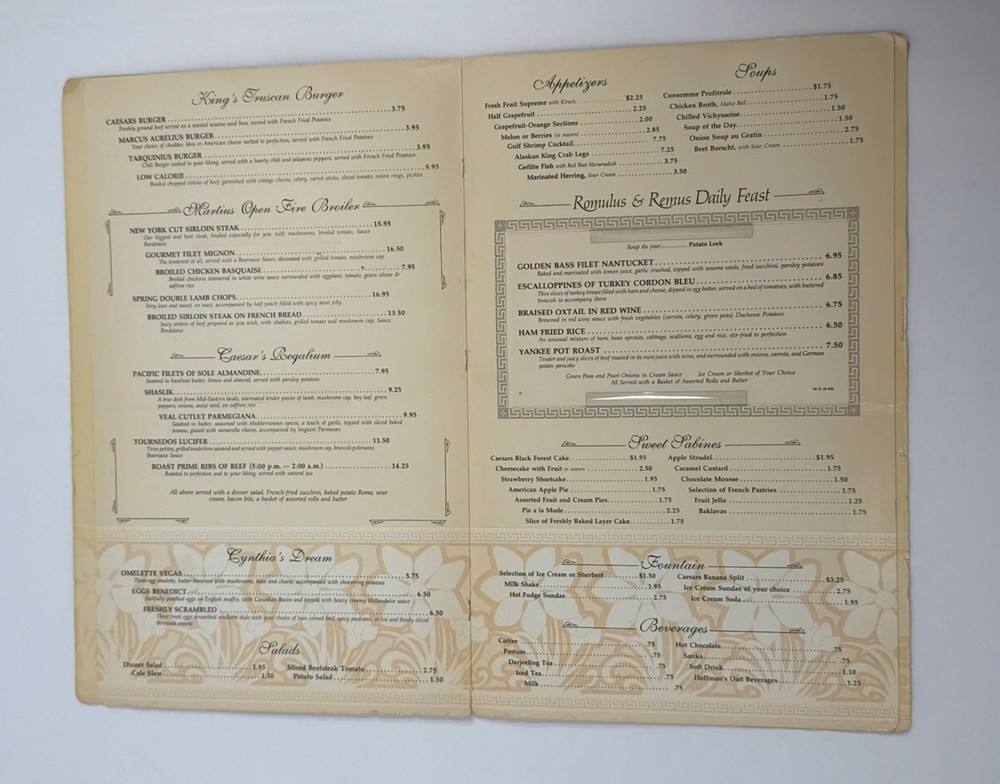 King's Truscan Burger
CAESARS BURGER 3.75
Freshly ground beef served on a toasted sesame seed bun, served with French Fried Potatoes
MARCUS AURELIUS BURGER 3.95
Your choice of cheddar, bleu or American cheese melted to perfection, served with French Fried Potatoes
TARQUINIUS BURGER 3.95
Chili Burger cooked to your liking, served with a hearty chili and jalapeno peppers, served with French Fried Potatoes
LOW CALORIE 5.95
Broiled chopped sirloin of beef, garnished with cottage cheese, celery, carrot sticks, sliced tomato, onion rings, pickles
Martius Open Fire Broiler
NEW YORK CUT SIRLOIN STEAK 15.95
Our biggest and best steak, broiled especially for you with mushrooms, broiled tomato, Sauce
Bordelaise
GOURMET FILET MIGNON 16.50
The tenderest of all, served with a Bearnaise Sauce, decorated with grilled tomato, mushroom cap
BROILED CHICKEN BASQUAISE 7.95
Broiled chicken simmered in white wine sauce surrounded with eggplant, tomato, green olives &
saffron rice
SPRING DOUBLE LAMB CHOPS 16.95
Very lean and sweet, on toast, accompanied by half peach filled with spicy mint jelly
BROILED SIRLOIN STEAK ON FRENCH BREAD 13.50
Juicy sirloin of beef prepared as you wish, with shallots, grilled tomato and mushroom cap, Sauce
Bordelaise
Caesar's Regalium
PACIFIC FILETS OF SOLE ALMANDINE 7.95
Sauteed in hazelnut butter, lemon and almond, served with parsley potatoes
SHASLIK 9.25
A true dish from Mid-Eastern lands, marinated tender pieces of lamb, mushroom cap, bay leaf, green
peppers, onions, anise seed, on saffron rice
VEAL CUTLET PARMEGIANA 9.95
Sauteed in butter, seasoned with Mediterranean spices, a touch of garlic, topped with sliced baked
tomato, glazed with mozarella cheese, accompanied by linguini Parmesan
TOURNEDOS LUCIFER 11.50
Twin petites, grilled tenderloin sauteed and served with pepper sauce, mushroom cap, broccoli polonaise,
Bearnaise
ROAST PRIME RIBS OF BEEF (5:00 p.m. — 2:00 a.m.) 14.25
Roasted to perfection and to your liking, served with natural jus
All above served with a dinner salad, French-fried zucchini, baked potato Roma, sour
cream, bacon bits, a basket of assorted rolls and butter
Cynthia's Dream
OMELETTE VEGAS 5.75
Three egg omelette, butter-browned with mushrooms, ham and cheese, accompanied with shoestring potatoes
EGGS BENEDICT 6.50
Skillfully poached eggs on English muffin, with Canadian Bacon and topped with heavy creamy Hollandaise sauce
FRESHLY SCRAMBLED 6.50
Three fresh eggs scrambled southern style with your choice of lean corned beef, spicy pastrami, or lox and thinly sliced
Bermuda onions
Salads
Dinner Salad 1.95
Cole Slaw 1.50
Sliced Beefsteak Tomato 2.75
Potato Salad 1.50
Appetizers
Fresh Fruit Supreme with Kirsch $2.25
Half Grapefruit 2.25
Grapefruit-Orange Sections 2.00
Melon or Berries (in season) 2.85
Gulf Shrimp Cocktail 7.75
Alaskan King Crab Legs 7.25
Gefilte Fish with Red Beet Horseradish 3.75
Marinated Herring, Sour Cream 3.50
Soups
Consomme Profitrole $1.75
Chicken Broth, Matzo Ball 1.75
Chilled Vichyssoise 1.50
Soup of the Day 1.50
Onion Soup au Gratin 2.75
Beet Borscht, with Sour Cream 1.75
Romulus & Remus Daily Feast
Soup du jour Potato Leek
GOLDEN BASS FILET NANTUCKET 6.95
Baked and marinated with lemon juice, garlic crushed, topped with sesame seeds, fried zucchini, parsley potatoes
ESCALLOPPINES OF TURKEY CORDON BLEU 6.85
Thin slices of turkey breast filled with ham and cheese, dipped in egg batter, served on a bed of tomatoes, with buttered
broccoli to accompany them
BRAISED OXTAIL IN RED WINE 6.75
Browned in red wine sauce with fresh vegetables (carrots, celery, green peas) Duchesse Potatoes
HAM FRIED RICE 6.50
An unusual mixture of ham, bean sprouts, cabbage, scallions, egg and rice, stir-fried to perfection
YANKEE POT ROAST 7.50
Tender and juicy slices of beef roasted in its own juice with wine, and surrounded with onions, carrots, and German
potato pancake
Green Peas and Pearl Onions in Cream Sauce Ice Cream or Sherbet of Your Choice
All Served with a Basket of Assorted Rolls and Butter
Sweet Sabines
Caesars Black Forest Cake $1.95
Cheesecake with Fruit in season 2.50
Strawberry Shortcake 1.95
American Apple Pie 1.75
Assorted Fruit and Cream Pies 1.75
Pie a la Mode 2.25
Slice of Freshly Baked Layer Cake 1.75
Apple Strudel $1.95
Caramel Custard 1.75
Chocolate Mousse 1.50
Selection of French Pastries 1.75
Fruit Jello 1.25
Baklavas 1.75
Fountain
Selection of Ice Cream or Sherbert $1.50
Milk Shake 1.95
Hot Fudge Sundae 2.75
Caesars Banana Split $3.25
Ice Cream Sundae of your choice 2.75
Ice Cream Soda 1.95
Beverages
Coffee .75
Postum .75
Darjeeling Tea .75
Iced Tea .75
Milk .75
Hot Chocolate .75
Sanka .75
Soft Drink 1.10
Hoffman's Diet Beverages 1.25